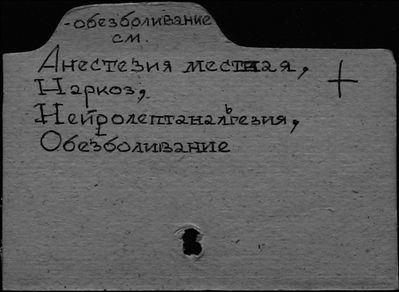 -обезболивание
см.
Анестезия местная,
Наркоз,
Нейролептаналгезия,
Обезболивание